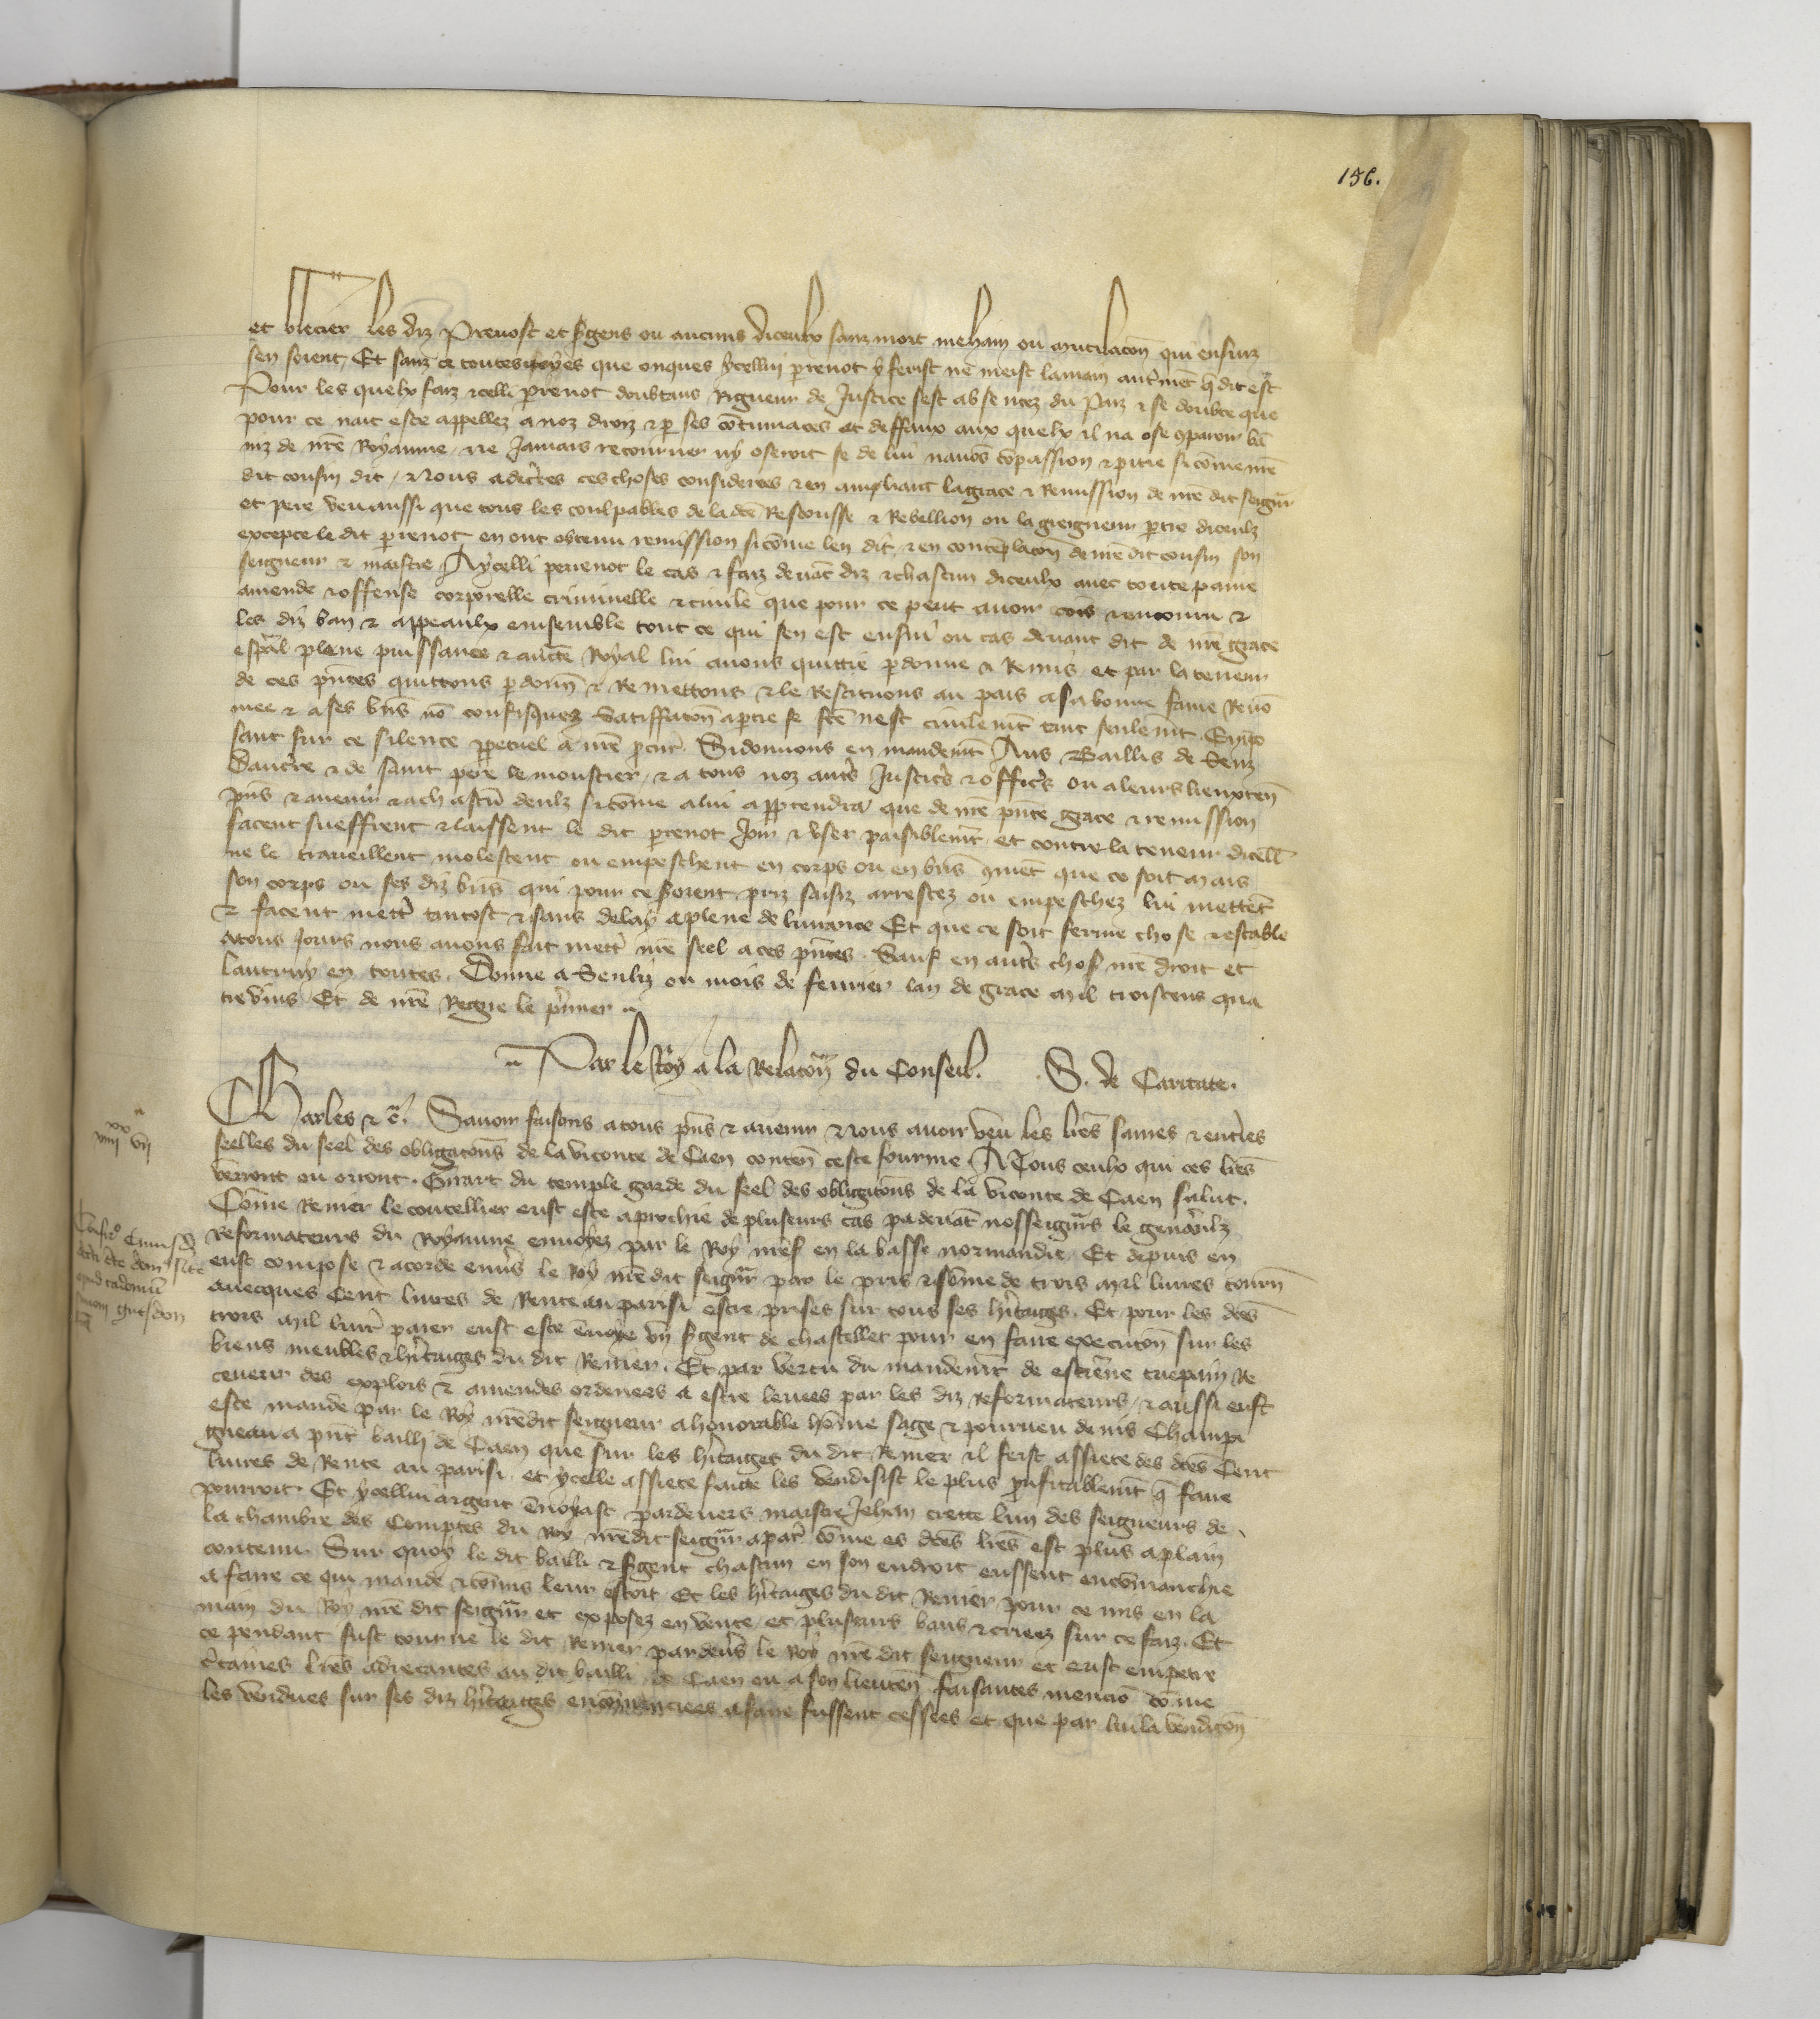 156.
et blecier les diz Prevost et s'gens ou aucuns diceulx sanz mort mehaing ou mutilacōn qui ensuiz
sen soient, Et sanz ce toutesvoyes que onques ycellui perrenot y ferist ne meist la main autremēt q̄ dit est
Pour les quelx faiz icelli perrenot doubtans Rigueur de Justice sest absentez du Paiz & se doubte que
pour ce nait este appellez a noz droiz & p ses cōtumaces et deffaux aux quelx il na ose cparoir bā
niz de nr̄e Royaume, ne Jamais retourner ny oseroit se de lui navōs cōpassion & pitie si cōme nr̄e
dit cousin dit, Nous adcertes ces choses considerees & en ampliant la grace & Remission de nr̄e dit seigñr
et pere veu aussi que tous les coulpables de la dc̄e Rescousse & Rebellion ou la greigneur ptie diceulz
excepte le dit perrenot en ont obtenu remission si cōme len dit, & en contēplacōn de nr̄e dit cousin son
seigneur & maistre Aycelli perrenot le cas & faiz devāt diz & chascun diceulx avec toute paine
amende & offense corporelle criminelle & civile que pour ce peut avoir encouru &
les diz ban & appeaulx ensemble tout ce qui sen est ensui ou cas devant dit de nr̄e grace
esp̄al plene puissance & auctē Royal lui avons quittie pdonne & Remis, et par la teneur
de ces pñtes quittons pdonn̄ & Remettons & le Restituons au pais a sa bonne fame Renō
mee & a ses bn̄s nō confisquez Satiffacōn a ptie se fc̄e nest civilem̄t tant seulem̄t. Enipo
sant sur ce silence ppetuel a nr̄e pcur̄. Si donnons en mandem̄t Aus Baillis de Senz
Daucerre & de saint pere le moustier, & a tous noz autr̄s Justiciers & officrs ou a leurs lieuxten̄
pn̄s & avenir & a chascū deulz si cōme a lui apptendra que de nr̄e pñte grace & remission
facent sueffrent & laissent le dit perrenot Joir & user paisiblem̄t, et contre la teneur dicell̄
ne le traveillent molestent ou empeschent en corps ou en bn̄s cōmēt que ce soit mais
son corps ou ses diz bn̄s qui pour ce seroient priz saisiz arrestez ou empeschez lui mettēt
& facent mettr̄ tantost & sans delay a plene delivrance Et que ce soit ferme chose & estable
atous Jours nous avons fait mettr̄ nr̄e seel a ces pñtes. Sauf en autr̄s chos̄ nr̄e droit et
lautruy en toutes. Donne a Senliz ou mois de fevrier lan de grace mil troiscens qua
trevins. Et de nr̄e Regne le p'mier.
Par le Roy a la Relacōn du Conseil. S. de Caritate.
Charles &c̄. Savoir faisons a tous pn̄s & avenir Nous avoir veu les lr̄es saines & entieres
seelles du seel des obligacōns de la viconte de Caen conten̄ ceste fourme. A Tous ceulx qui ces lr̄es
verront ou orront. Girart du temple garde du seel des obligacōns de la viconte de Caen salut.
Cōme Renier le coutellier eust este aprochie de pluseurs cas pa devāt nosseigñrs le genāulz
Reformateurs du Royaume envoyez par le Roy nr̄es̄ en la basse normandie, Et depuis en
eust compose & acorde envs̄ le Roy nr̄e dit seigñr par le pris & sōme de trois mil livres tourn̄
avecques Cent livres de Rente au parisi estre prises sur tous ses hr̄itaiges. Et pour les dc̄es
trois mil livr̄ paier eust este ēvoye un s'gent de chastellet pour en faire execucōn sur les
biens meubles & hr̄itaiges du dit Renier. Et par vertu du mandem̄t de estienne trepain Re
ceveur des explois & amendes ordenees a estre levees par les diz reformateurs, & aussi eust
este mande par le Roy nr̄edit seigneur a honorable hōme sage & pourveu denis Champi
gneau a pn̄t bailli de Caen que sur les hr̄itaiges du dit Renier il feist assiete des dc̄es Cent
livres de Rente au parisi, et ycelle assiete faite les vendisist le plus pufitablem̄t q̄ faire
pourroit. Et ycellui argent ēvoyast pardevers maistre Jehan crete lun des seigneurs de
la chambre des Comptes du Roy nr̄edit seigñr a par̄ cōme es dc̄es lr̄es est plus a plain
contenu. Sur quoy le dit bailli & s'gent chascun en son endroit eussent encōmanchie
a faire ce qui mande & cōmis leur estoit. Et les hr̄itaiges du dit Renier pour ce mis en la
main du Roy nr̄e dit seigñr et exposez en vente, et plusieurs bans & criees sur ce faiz. Et
ce pendant fust tourne le dit Renier pardevs̄ le Roy nr̄e dit seigneur et eust empetre
c̄taines lr̄es adrecantes au dit bailli de Caen ou a son lieuten̄ faisantes mencīō cōme
les vendues sur ses diz hr̄itaiges encōmenciees a faire fussent cessees et que par lui la vendicōn